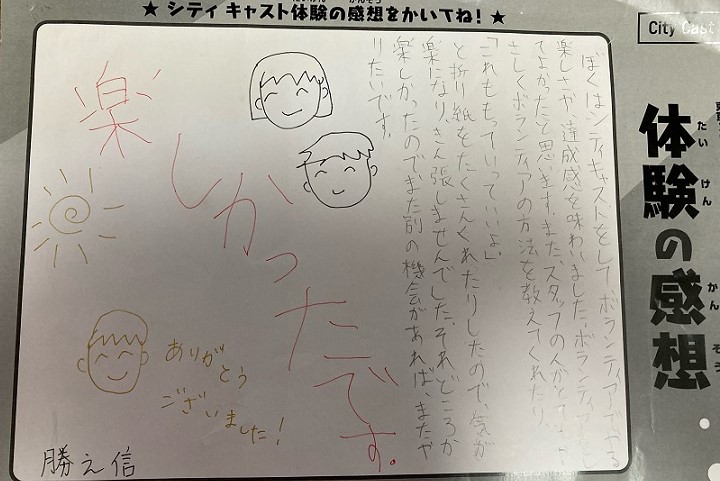 ★ シティ キャスト体験の感想をかいてね! ★
City Cast
体験の感想
たいけん
かんそう
ぼくはシティキャストをして、ボランティアでやる
楽しさや、達成感を味わいました。ボランティアをし
てよかったと思います。またスタッフの人がとてもや
さしくボランティアの方法を教えてくれたり、
「これももっていっていいよ」
と折り紙をたくさんくれたりしたので、気が
楽になり、きん張しませんでした。それどころか
楽しかったのでまた別の機会があれば、またや
りたいです。
楽しかったです。
ありがとう
ございました!
勝え信